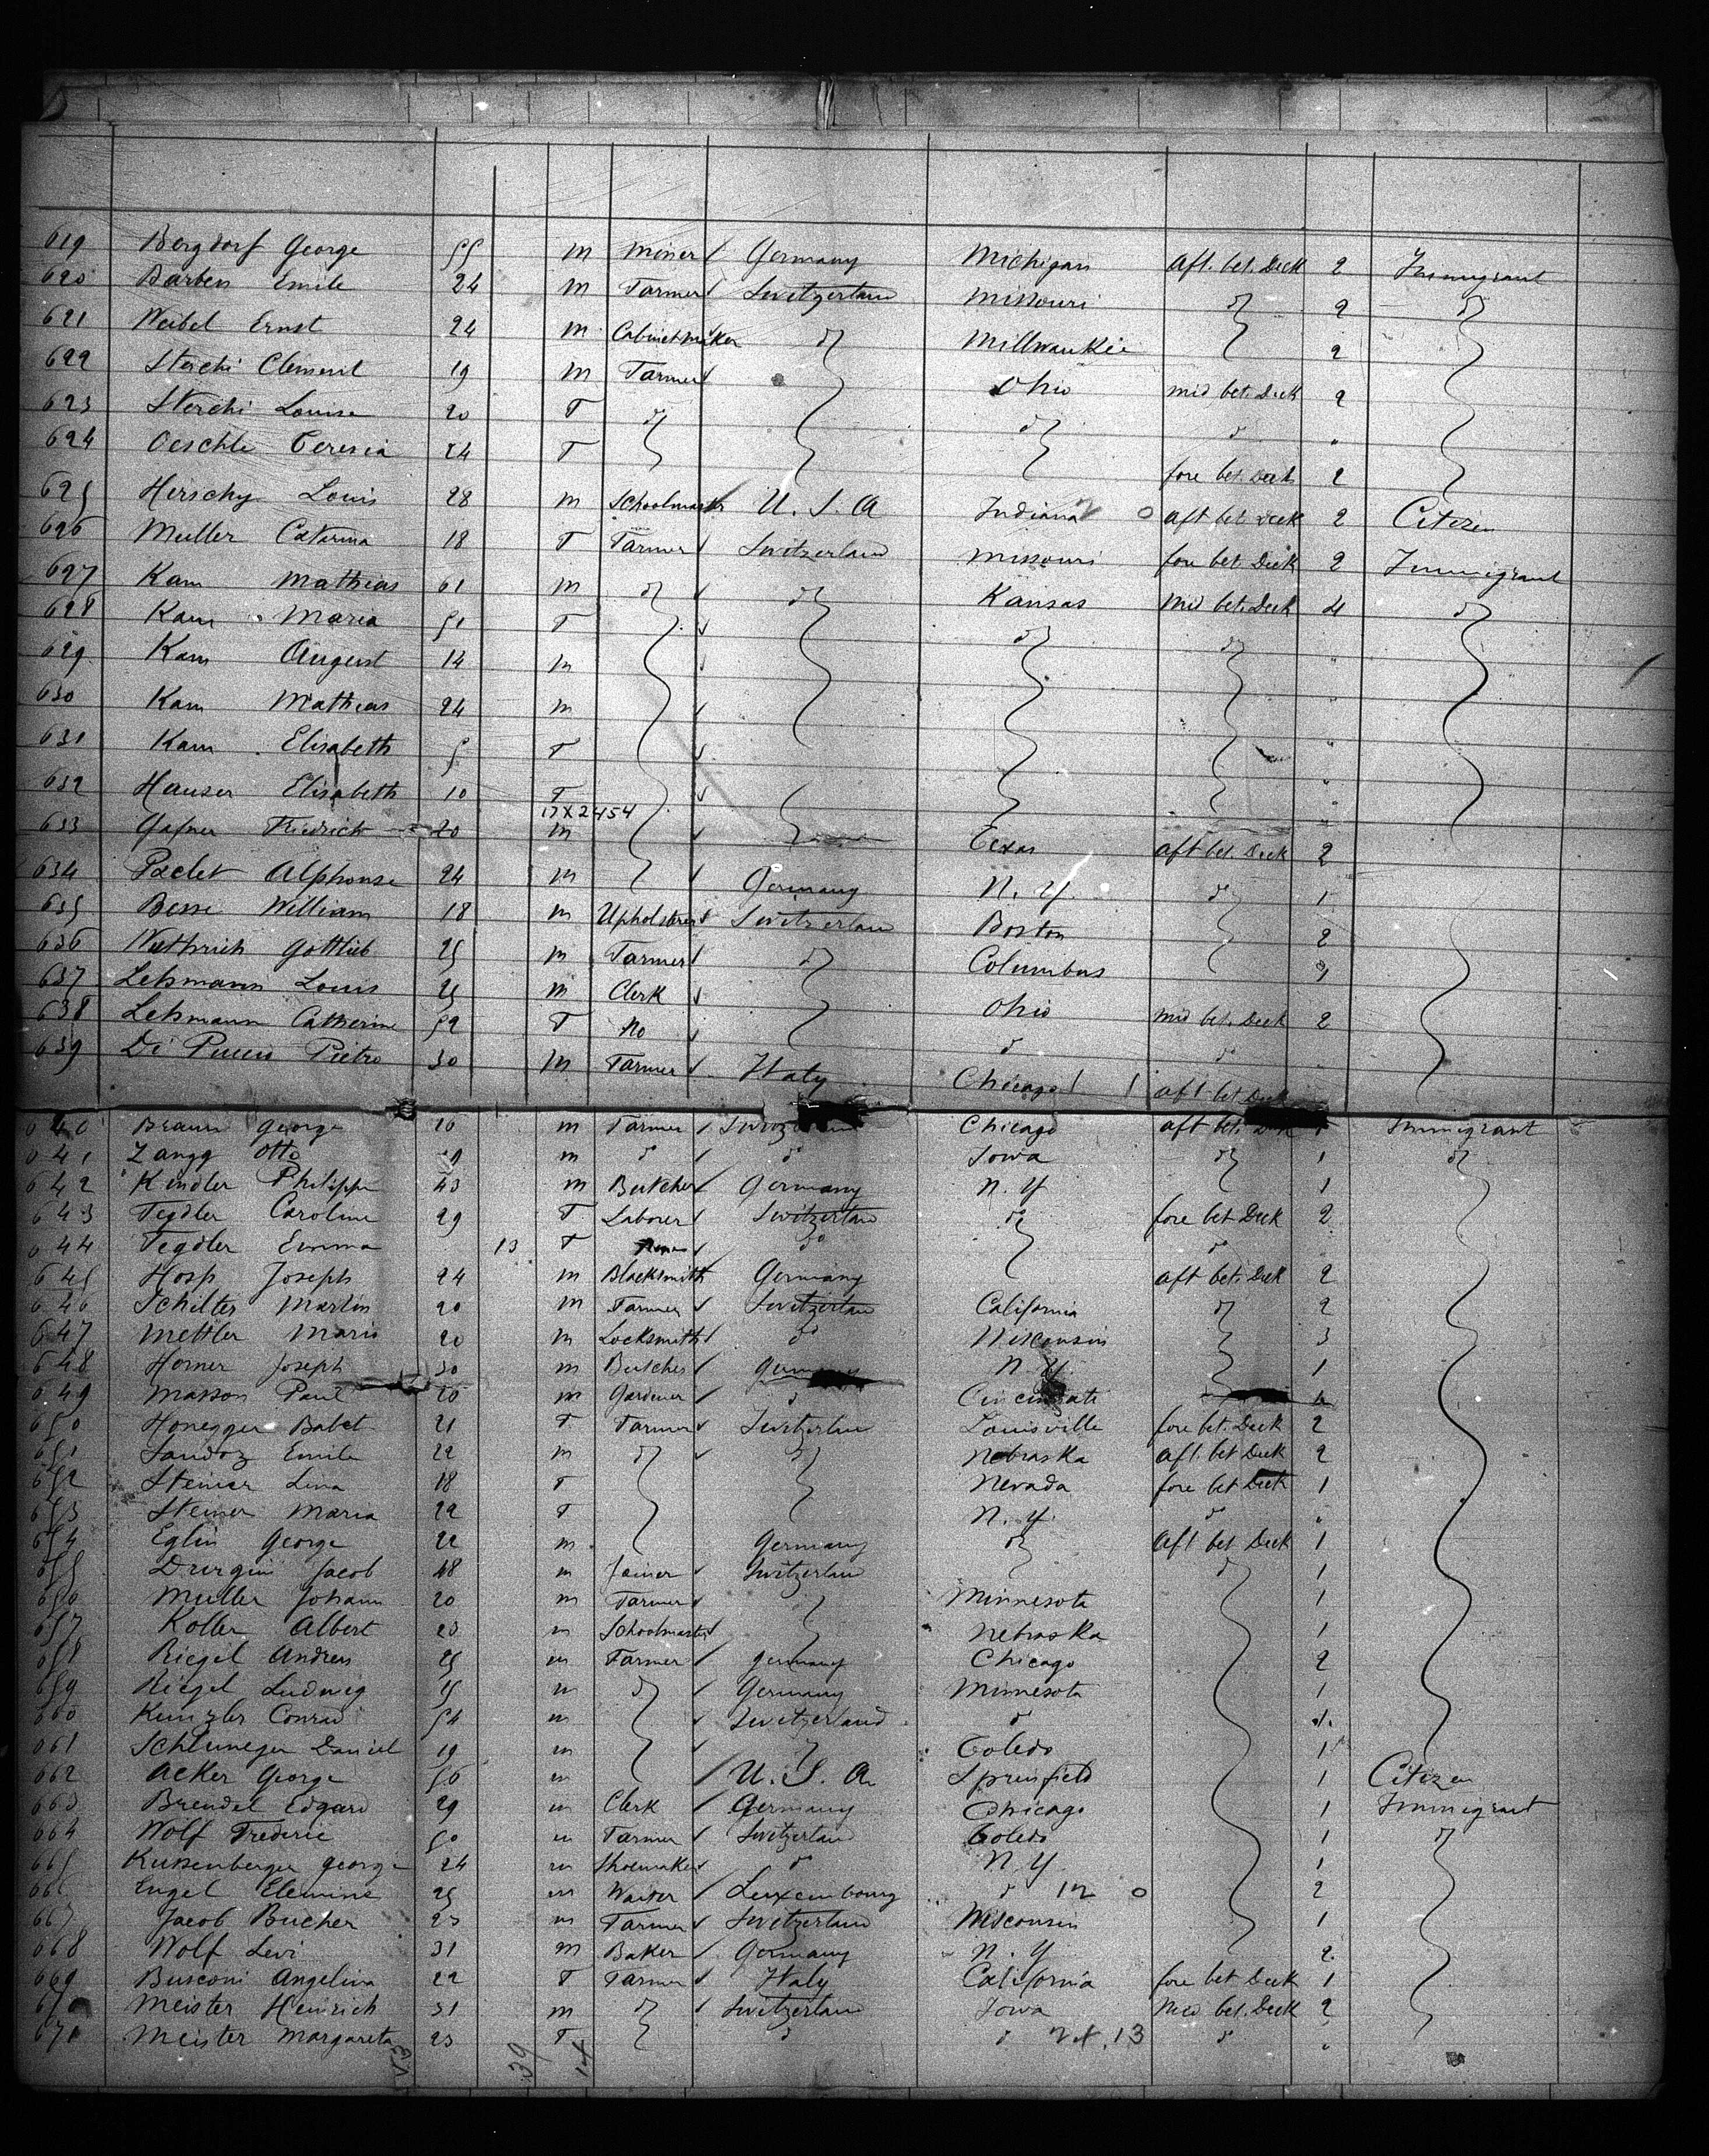 619 Bergdorf George 55 M Miner Germany Michigan Aft. bet. Deck 2 Immigrant
620 Barben Emile 24 M Farmer Switzerland Missouri do 2 do
621 Weibel Ernst 24 M Cabinetmaker do Millwaukie 2
622 Sterchi Clement 19 M Farmer Ohio Mid bet. Deck 2
623 Sterchi Louise 20 F do do do "
624 Oeschle Teresia 24 F fore bet. Deck 2
625 Herschy Louis 28 M Schoolmaster U. S. A Indiana aft bet deck 2 Citizen
626 Muller Catarina 18 F Farmer Switzerland Missouri fore bet. Deck 2 Immigrant
627 Kam Mathias 61 M do do Kansas Mid bet. Deck 4 do
628 Kam Maria 51 F do do "
629 Kam August 14 M "
630 Kam Mathias 24 M "
631 Kam Elisabeth 5 F "
632 Hauser Elisabeth 10 F "
17X2454
633 Gafner Friedrich 20 M Texas aft bet. Deck 2
634 Alphonse 24 M Germany N. Y. do 1
635 Besse William 18 M Upholsterer Switzerland Boston 2
636 Wuthrich Gottlieb 25 M Farmer do Columbus
637 Lehmann Louis 25 M Clerk Ohio Mid bet. Deck 2
638 Lehmann Catherine 52 F No do do "
639 Di Puccio Pietro 30 M Farmer Italy Chicago aft bet Deck
640 Braun George M Farmer Chicago aft bet. Immigrant
641 Zangg Otto M do do Iowa do 1 do
642 Kindler Philippe 43 M Butcher Germany N. Y 1
643 Tegdler Caroline 29 F Laborer Switzerland do fore bet Deck 2
644 Tegdler Emma 13 F do do
645 Hosp Joseph 24 M Blacksmith Germany aft bet. Deck 2
646 Schilter Martin 20 M Farmer Switzerland California do 2
647 Mettler Mario 20 M Locksmith do Wisconsin 3
648 Horner Joseph 30 M Butcher Germany N. Y. 1
649 Masson Paul 20 M Gardener do Cincinnati
650 Honegger Babet 21 F Farmer Switzerlan Louisville fore bet. Deck 2
651 Sandoz Emile 22 M do do Nebraska aft bet Deck 2
652 Steiner Lina 18 F Nevada fore bet Deck 1
653 Steiner Maria 22 F N. Y. do "
654 Eglin George 22 M Germany do aft bet Deck 1
655 Jacob 48 M Joiner Switzerlan do 1
656 Muller Johann 20 M Farmer Minnesota 1
657 Koller Albert 23 M Schoolmaster Nebraska 1
658 Riegel Andreas 25 M Farmer Germany Chicago 2
659 Riegel Ludwig M do Germany Minnesota 1
660 Kunzler Conrad 54 M Switzerland do 1
661 Daniel 19 M Toledo 1
662 Acker George 56 M U. S. A. Sprinfield 1 Citizen
663 Brendel Edgard 29 M Clerk Germany Chicago 1 Immigrant
664 Wolf Frederic 50 M Farmer Switzerland Toledo 1 do
665 Kussenberger George 24 M Shoemaker do N Y 1
666 Engel Elemine 25 M Waiter Luxembourg do 12 0 2
667 Jacob Bucher 23 M Farmer Switzerland Wisconsin 1
668 Wolf Levi 31 M Baker Germany N. Y 2
669 Busconi Angelina 22 F Farmer Italy California fore bet Deck 1
670 Meister Heinrich 31 M do Switzerland Iowa Mid bet. Deck 2
671 Meister Margareta 23 F do do do "
39 14